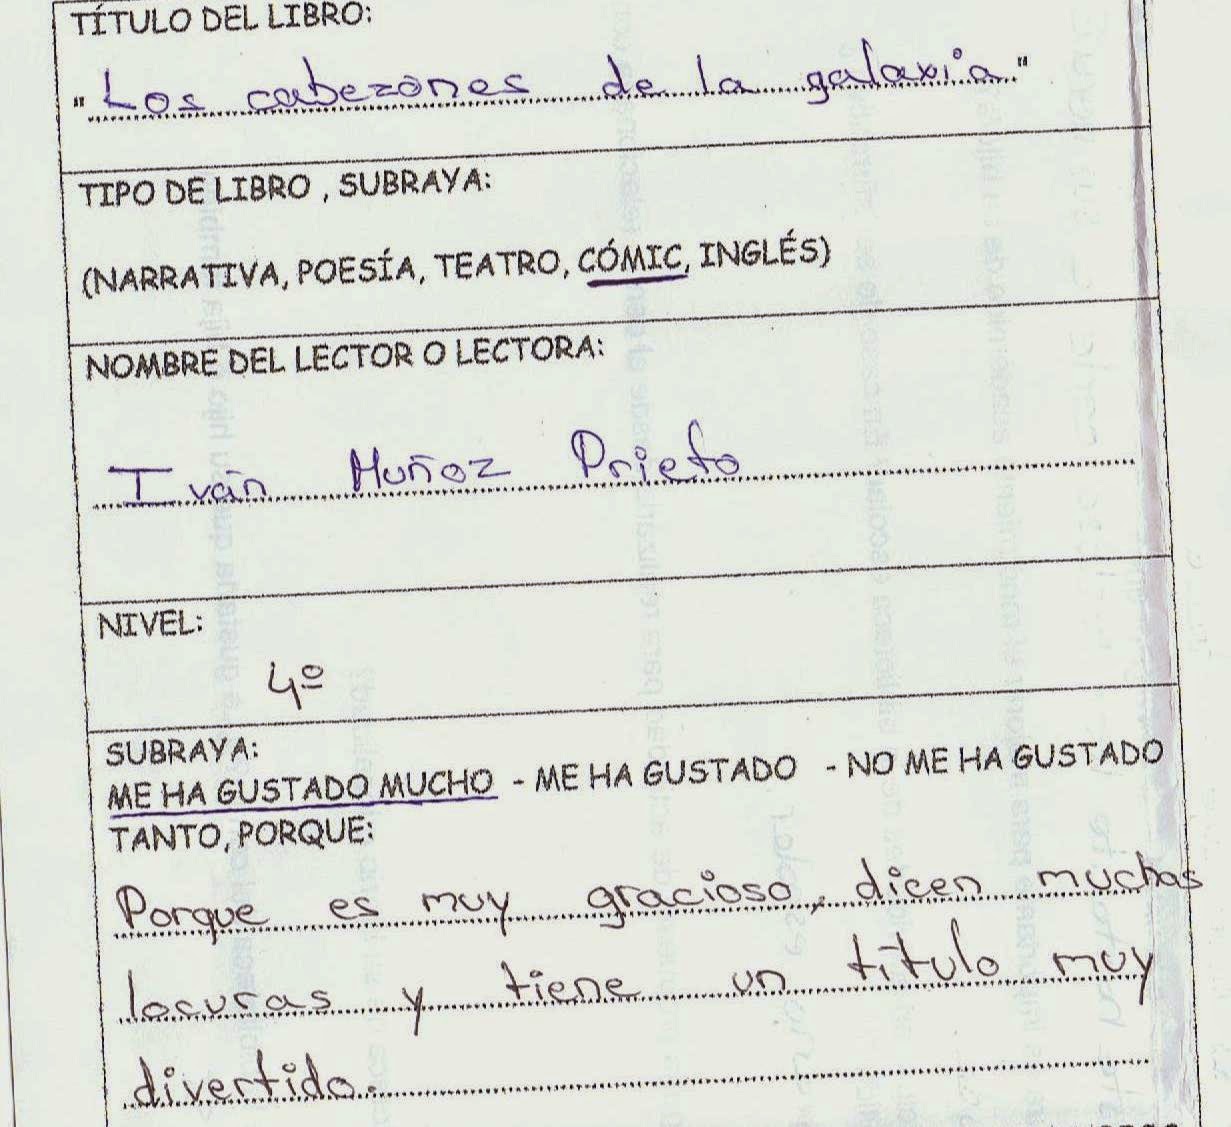 TÍTULO DEL LIBRO:
"Los cabezones de la galaxia"
TIPO DE LIBRO , SUBRAYA:
(NARRATIVA, POESÍA, TEATRO, CÓMIC, INGLÉS)
NOMBRE DEL LECTOR O LECTORA:
Iván Muñoz Prieto
NIVEL:
4º
SUBRAYA:
ME HA GUSTADO MUCHO - ME HA GUSTADO - NO ME HA GUSTADO
TANTO, PORQUE:
Porque es muy gracioso, dicen muchas
locuras y tiene un título muy
divertido.